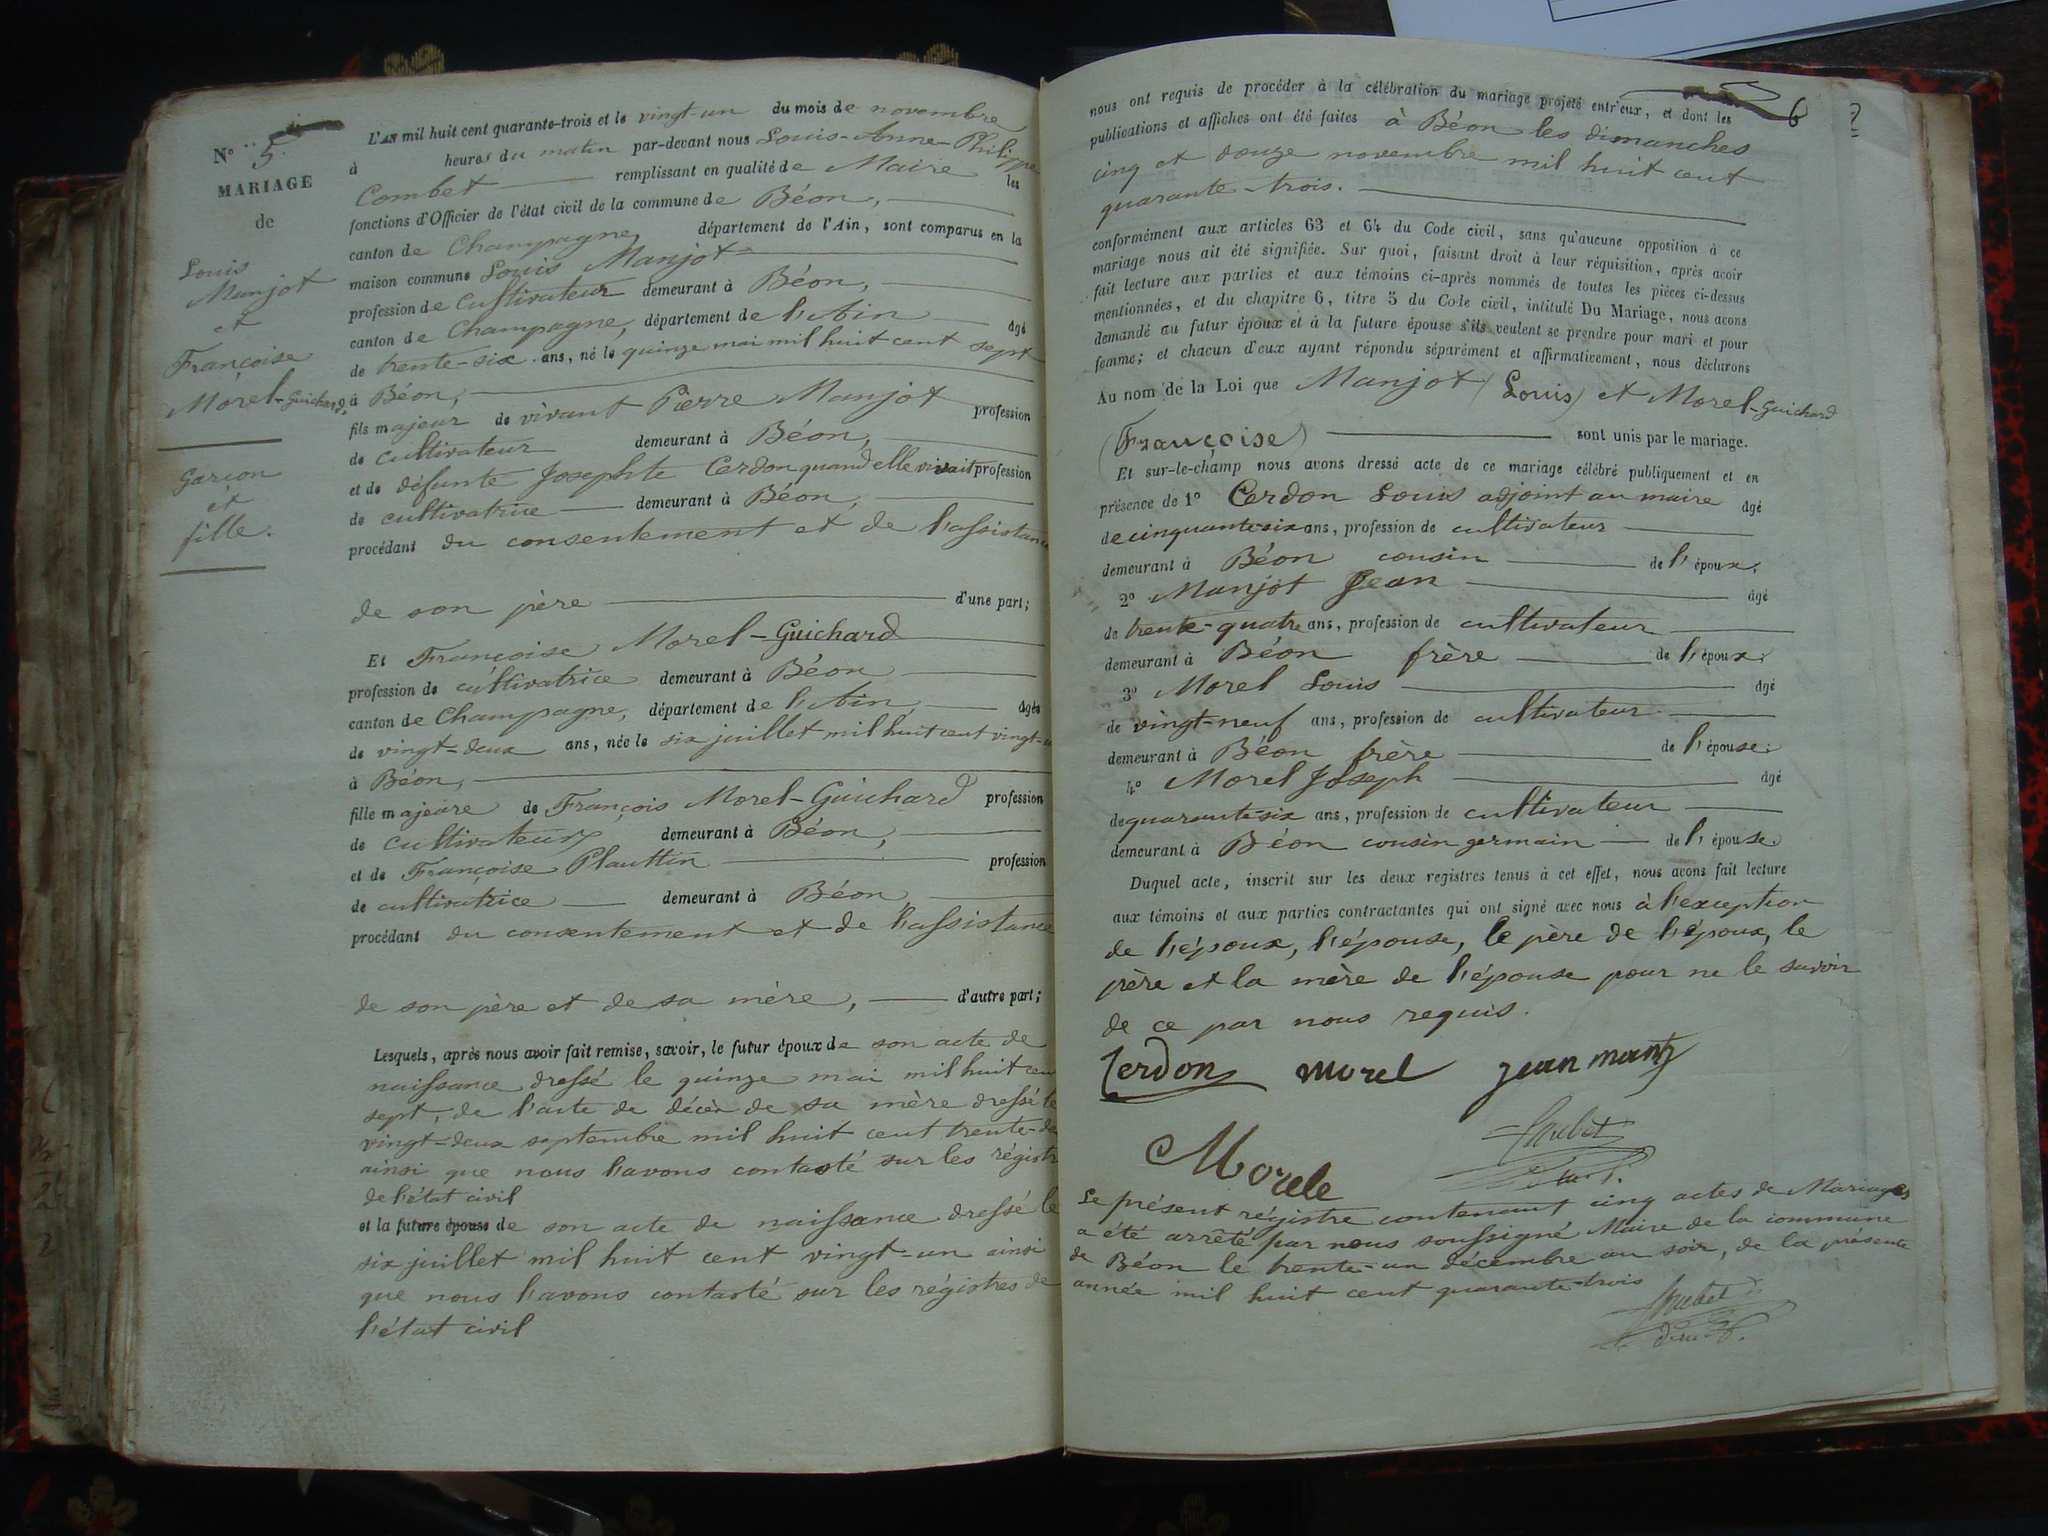 N° 5.
MARIAGE
de
Louis
Manjot
et
Françoise
Morel-Guichard
Garcon
et
fille.
L'AN mil huit cent quarante-trois et le vingt-un du mois de novembre
à heures du matin par-devant nous Louis-Anne-Philippe
Combet remplissant en qualité de Maire les
fonctions d'Officier de l'état civil de la commune de Béon,
canton de Champagne, département de l'Ain, sont comparus en la
maison commune Louis Manjot
profession de cultivateur demeurant à Béon,
canton de Champagne, département de l'Ain âgé
de trente-six ans, né le quinze mai mil huit cent sept
à Béon,
fils majeur de vivant Pierre Manjot profession
de cultivateur demeurant à Béon,
et de défunte Josephte Cerdon quand elle vivait profession
de cultivatrice demeurant à Béon,
procédant du consentement et de l'assistance
de son père d'une part;
Et Françoise Morel-Guichard
profession de cultivatrice demeurant à Béon
canton de Champagne, département de l'Ain, âgée
de vingt-deux ans, née le six juillet mil huit cent vingt-un
à Béon,
fille majeure de François Morel-Guichard profession
de cultivateur demeurant à Béon,
et de Françoise Plauttin profession
de cultivatrice demeurant à Béon
procédant du consentement et de l'assistance
de son père et de sa mère, d'autre part;
Lesquels, après nous avoir fait remise, savoir, le futur époux de son acte de
naissance dressé le quinze mai mil huit cent
sept, de l'acte de décès de sa mère dressé le
vingt-deux septembre mil huit cent trente-
ainsi que nous l'avons contasté sur les régistres
de l'état civil
et la future épouse de son acte de naissance dressé le
six juillet mil huit cent vingt-un ainsi
que nous l'avons contasté sur les régistres de
l'état civil
6
nous ont requis de procéder à la célébration du mariage projeté entr'eux, et dont les
publications et affiches ont été faites à Béon les dimanches
cinq et douze novembre mil huit cent
quarante-trois.
conformément aux articles 63 et 64 du Code civil, sans qu'aucune opposition à ce
mariage nous ait été signifiée. Sur quoi, faisant droit à leur réquisition, après avoir
fait lecture aux parties et aux témoins ci-après nommés de toutes les pièces ci-dessus
mentionnées, et du chapitre 6, titre 5 du Code civil, intitulé Du Mariage, nous avons
demandé au futur époux et à la future épouse s'ils veulent se prendre pour mari et pour
femme; et chacun d'eux ayant répondu séparément et affirmativement, nous déclarons
Au nom de la Loi que Manjot (Louis) et Morel-Guichard
(Françoise) sont unis par le mariage.
Et sur-le-champ nous avons dressé acte de ce mariage célébré publiquement et en
présence de 1° Cerdon Louis adjoint au maire âgé
de cinquante six ans, profession de cultivateur
demeurant à Béon cousin de l'époux;
2° Manjot Jean âgé
de trente-quatre ans, profession de cultivateur
demeurant à Béon frère de l'époux;
3° Morel Louis âgé
de vingt-neuf ans, profession de cultivateur
demeurant à Béon frère de l'épouse;
4° Morel Joseph âgé
de quarante six ans, profession de cultivateur
demeurant à Béon cousin germain de l'épouse.
Duquel acte, inscrit sur les deux registres tenus à cet effet, nous avons fait lecture
aux témoins et aux parties contractantes qui ont signé avec nous à l'exception
de l'époux, l'épouse, le père de l'époux, le
père et la mère de l'épouse pour ne le savoir
de ce par nous requis.
Cerdon morel jean
Morele
Le présent régistre contenant cinq actes de Mariages
a été arrêté par nous soussigné Maire de la commune
de Béon le trente-un décembre au soir, de la présente
année mil huit cent quarante-trois